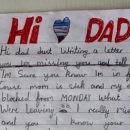 Hi DAD
Hi dad Just Writing a letter
you missing you and tell
I'm Sure you know Im in
couse mom is stuff and my
blocked from MONDAY what
Were leaving really Miss
and you know your